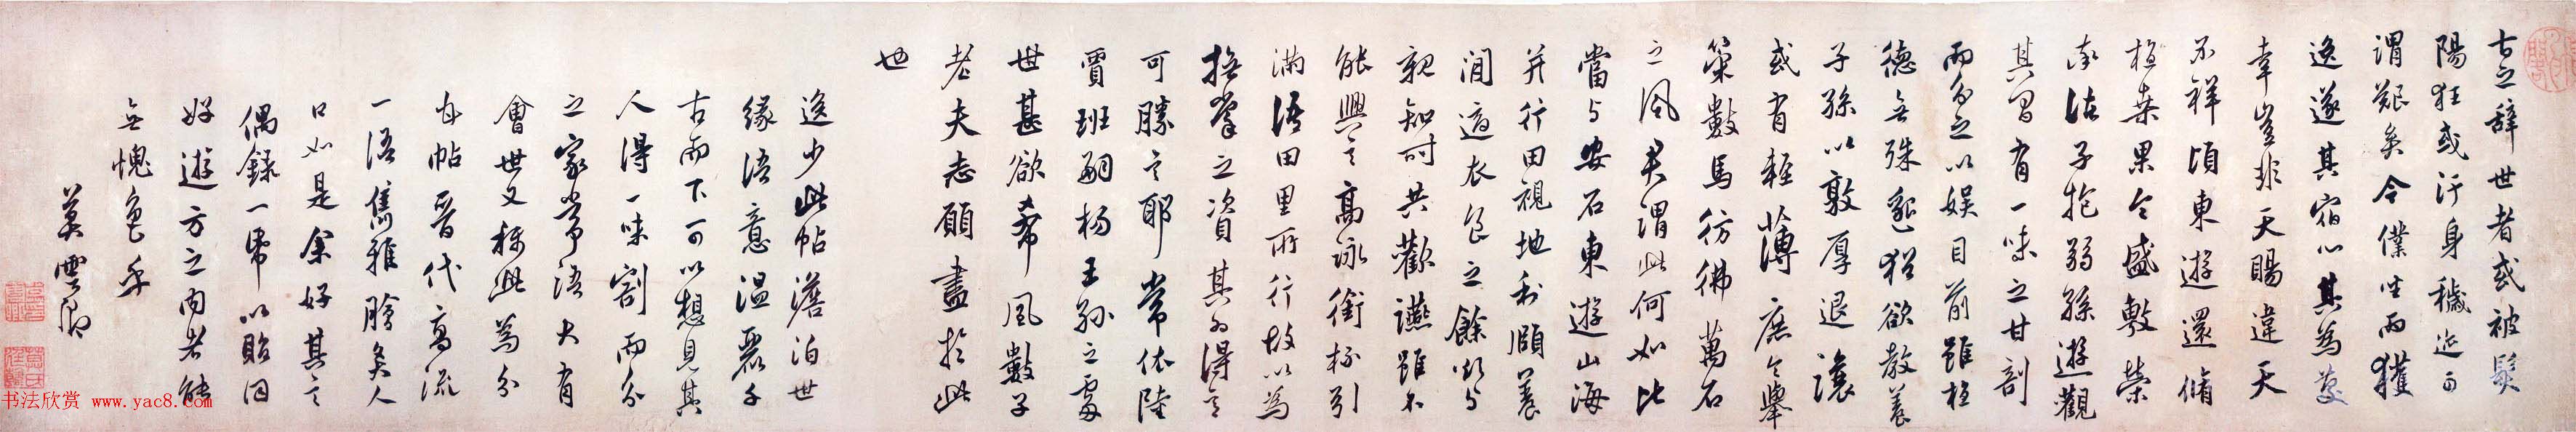 古之辞世者或被髮
陽狂或汙身穢迹可
謂艱矣今僕坐而獲
逸遂其宿心其為慶
幸豈非天賜違天
不祥頃東遊還脩
植桒果今盛敷榮
率諸子抱弱孫遊觀
其間有一味之甘割
而分之以娛目前雖植
德無殊邈猶欲教養
子孫以敦厚退讓
或有輕薄庶令舉
策數馬彷彿萬石
之風君謂此何如比
當與安石東遊山海
并行田視地利頤養
閒適衣食之餘欲與
親知時共歡讌雖不
能興言高詠銜杯引
滿語田里所行故以為
撫掌之資其為得言
可勝言耶常依陸
賈班嗣楊王孫之處
世甚欲希風數子
老夫志願盡於此
也
逸少此帖澹泊世
緣語意温麗千
古而下可以想見其
人得一味割而分
之家常語大有
會世又稱此為分
甘帖晉代高流
一語雋雅膾炙人
口如是余好其言
偶錄一帋以貽同
好遊方之内者能
無愧色乎
莫雲卿
书法欣赏 www.yac8.com